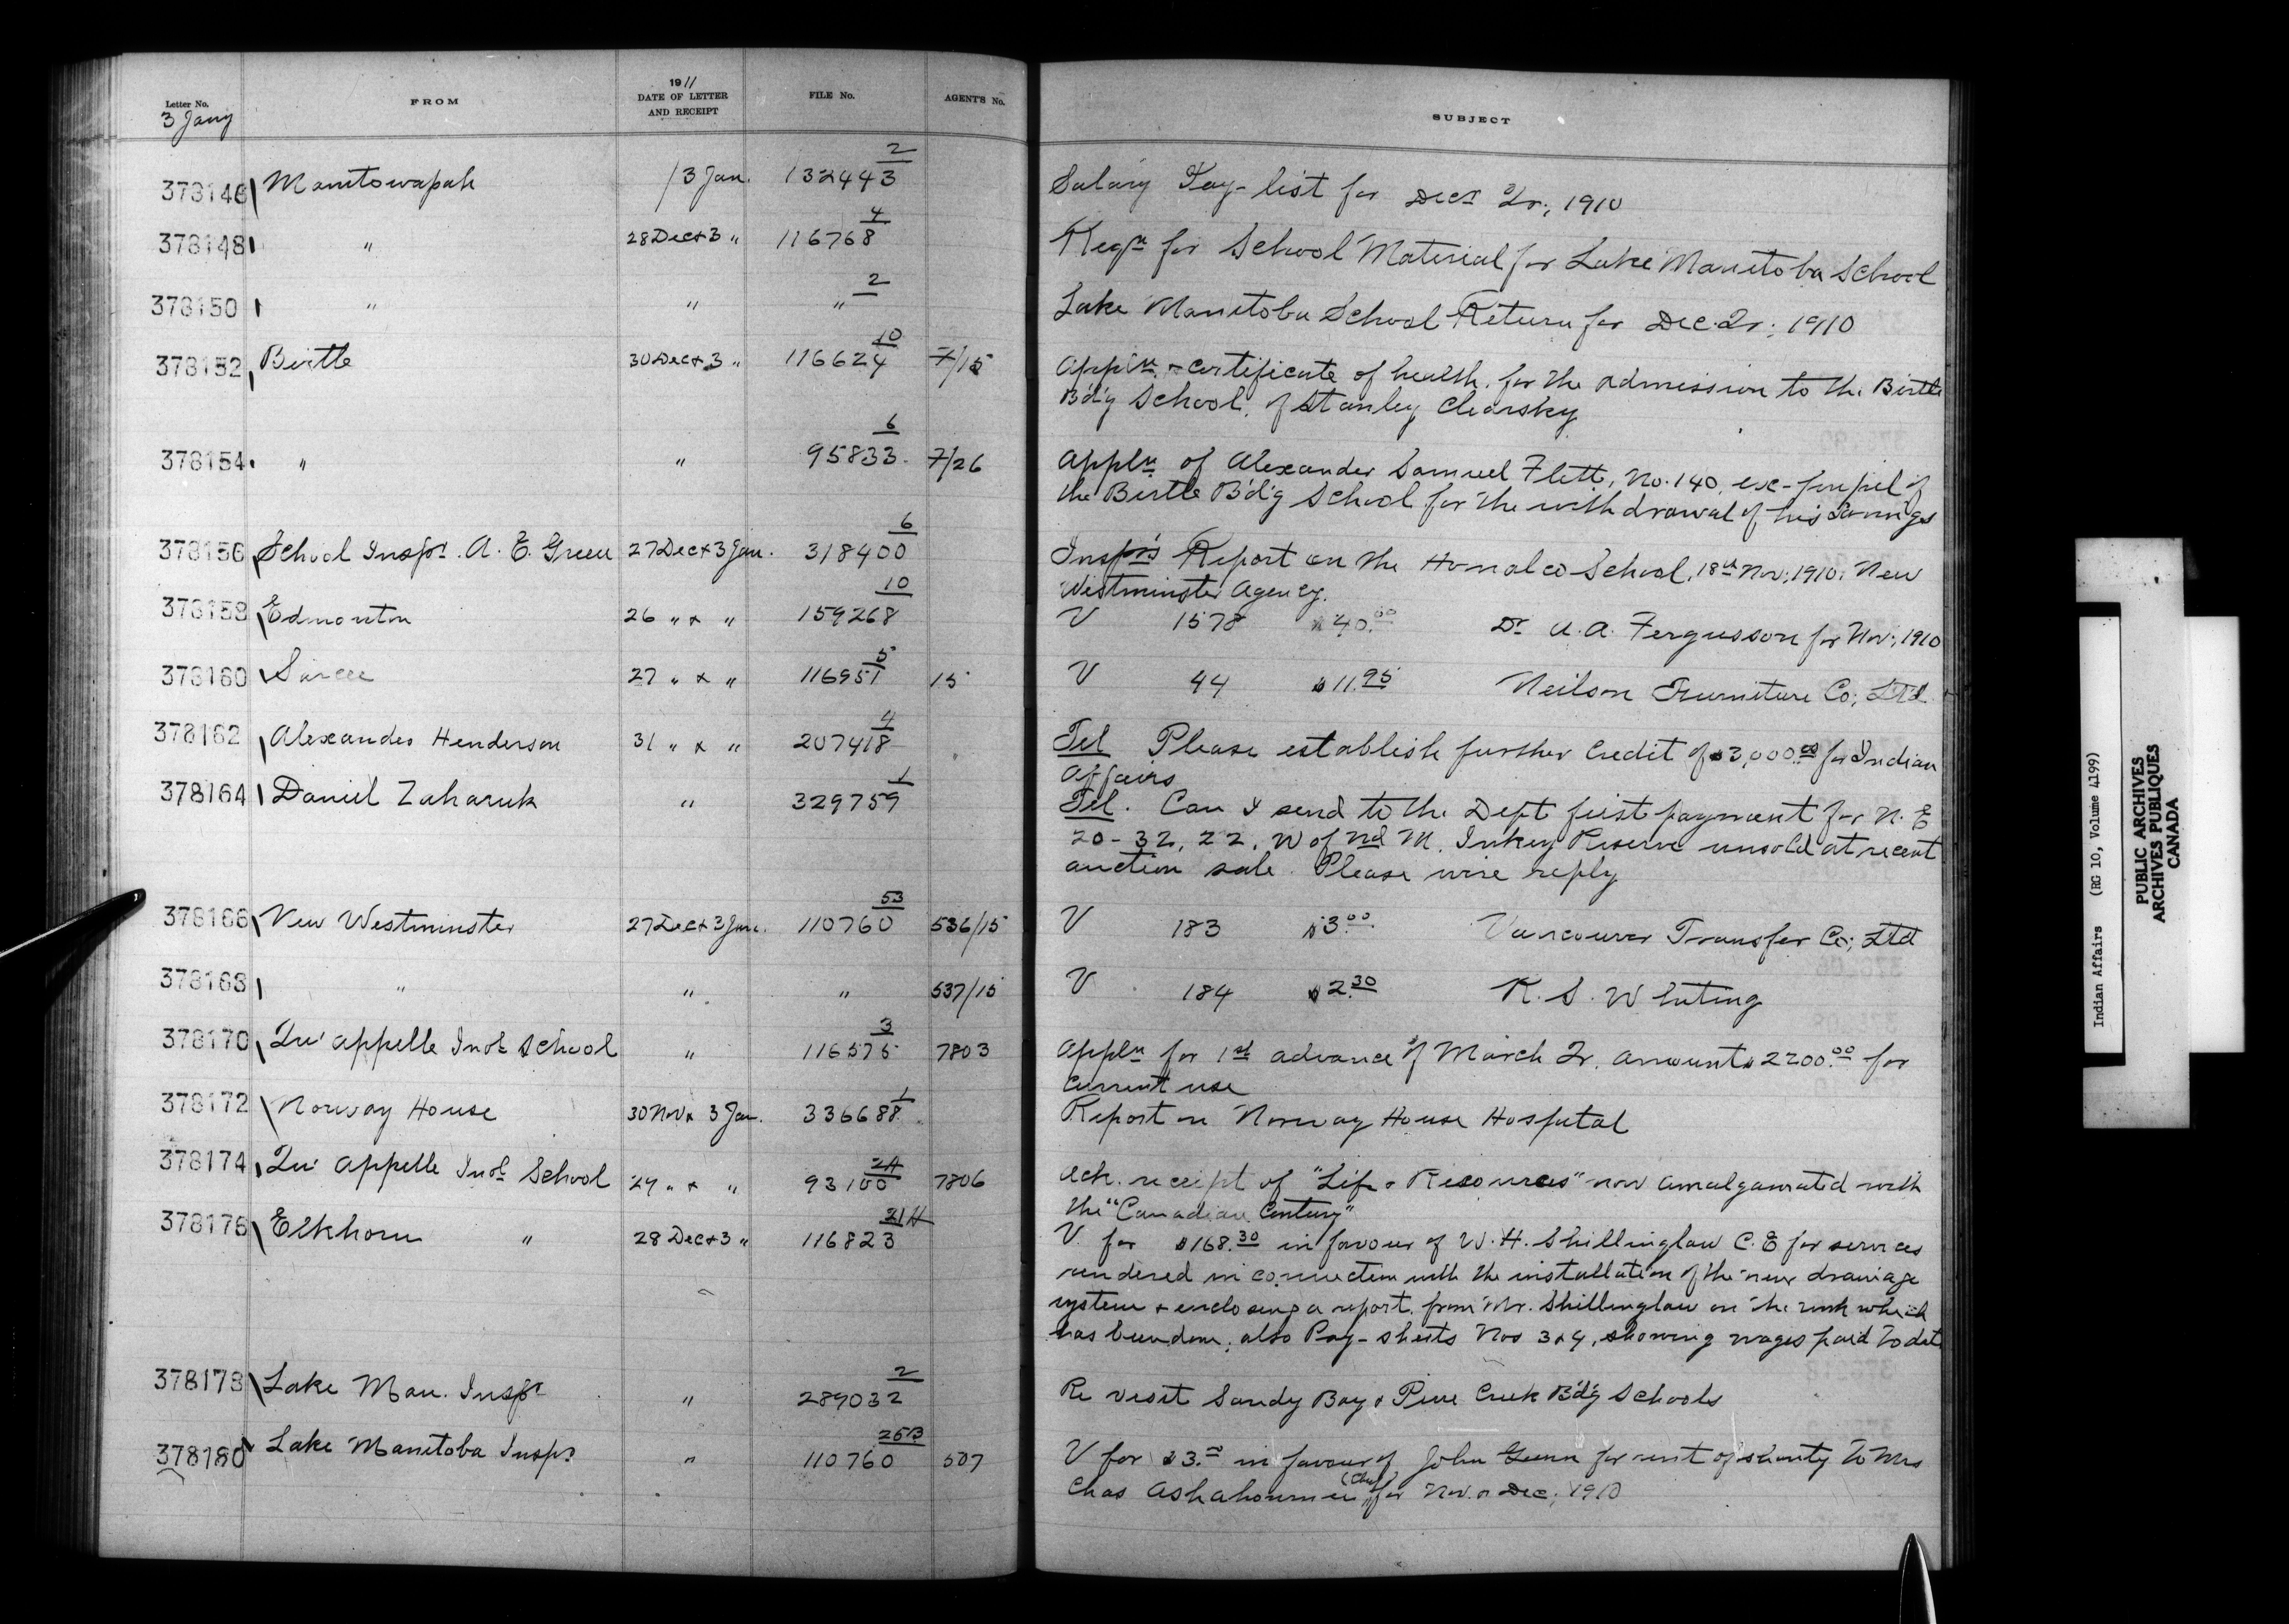 Letter No. FROM 1911 DATE OF LETTER AND RECEIPT FILE No. AGENT'S No. SUBJECT
3 Jany
378146 Manitowapah 3 Jan. 132443 2 Salary Pay-list for Decr Qr., 1910
378148 " 28 Dec & 3 " 116768 4 Reqn for School Material for Lake Manitoba School
378150 " " " 2 Lake Manitoba School Return for Dec. Qr; 1910
378152 Birtle 30 Dec & 3 " 116624 10 7/15 Appln & certificate of health for the admission to the Birtle
B'd'g School, of Stanley Clearsky
378154 " " 95833 6 7/26 Appln of Alexander Samuel Flett, No. 140, ex-pupil of
the Birtle B'd'g School for the withdrawal of his Savings
378156 School Inspr. A. E. Green 27 Dec & 3 Jan. 318400 6 Inspr's Report on the Homalco School, 18th Nov; 1910. New
Westminster Agency.
378158 Edmonton 26 " & " 159268 10 V 1578 $40.00 Dr A. A. Fergusson for Nov; 1910
378160 Sarcee 27 " & " 116951 5 15 V 44 $11.95 Neilson Furniture Co; Ltd
378162 Alexander Henderson 31 " & " 207418 4 Tel Please establish further credit of $3,000.00 for Indian
Affairs
378164 Daniel Zaharuk " 329759 1 Tel. Can I send to the Dept first payment for N. E
20-32, 22, W of 2nd M. Inkey Reserve unsold at recent
auction sale. Please wire reply
378166 New Westminster 27 Dec & 3 Jan. 110760 53 536/15 V 183 $3.00 Vancouver Transfer Co; Ltd
378168 " " " 537/15 V 184 $2.30 R. S. Whiting
378170 Qu'appelle Indl School " 116575 3 7803 Appln for 1st advance of March Qr. amount $2200.00 for
Current use
378172 Norway House 30 Nov & 3 Jan. 336688 1 Report on Norway House Hospital
378174 Qu'Appelle Indl School 29 " & " 93100 2A 7806 Ack. receipt of "Life & Resources" now amalgamated with
the "Canadian Century"
378176 Elkhorn " 28 Dec & 3 " 116823 21H V for $168.30 in favour of W. H. Shillinglaw C. E for services
rendered in connection with the installation of the new drainage
system & enclosing a report from Mr. Shillinglaw on the work which
has been done; also Pay-sheets Nos 3 & 4, showing wages paid to date
378178 Lake Man. Inspr " 289032 2 Re visit Sandy Bay & Pine Creek B'd'g Schools
378180 Lake Manitoba Inspr " 110760 25B 507 V for $3.00 in favour of John Gunn for rent of shanty to Mrs
Chas (Chief) for Nov. & Dec; 1910
Indian Affairs (RG 10, Volume 4199)
PUBLIC ARCHIVES
ARCHIVES PUBLIQUES
CANADA